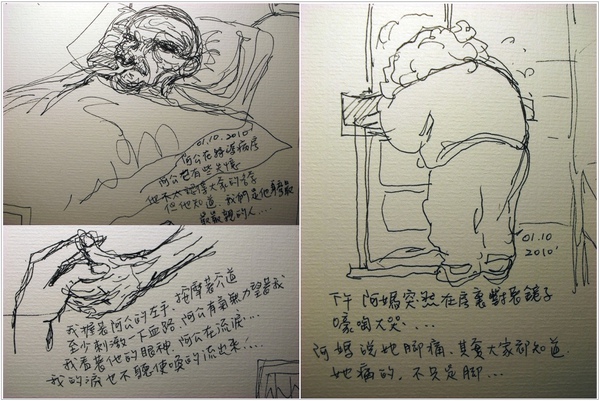 01.10.2010'
阿公在特護病房
阿公也有些失憶
他不太認得大家的名字
但他知道 我們是他身邊最
最最親的人....
我握著阿公的左手, 按摩著穴道
至少刺激一下血路, 阿公有氣無力望著我
我看著他的眼神, 阿公在流淚....
我的淚也不聽使喚的流出來!....
01.10
2010'
下午 阿媽突然在房裏對著鏡子
嚎啕大哭....
阿媽說她腳痛, 其實大家都知道
她痛的, 不只是腳...